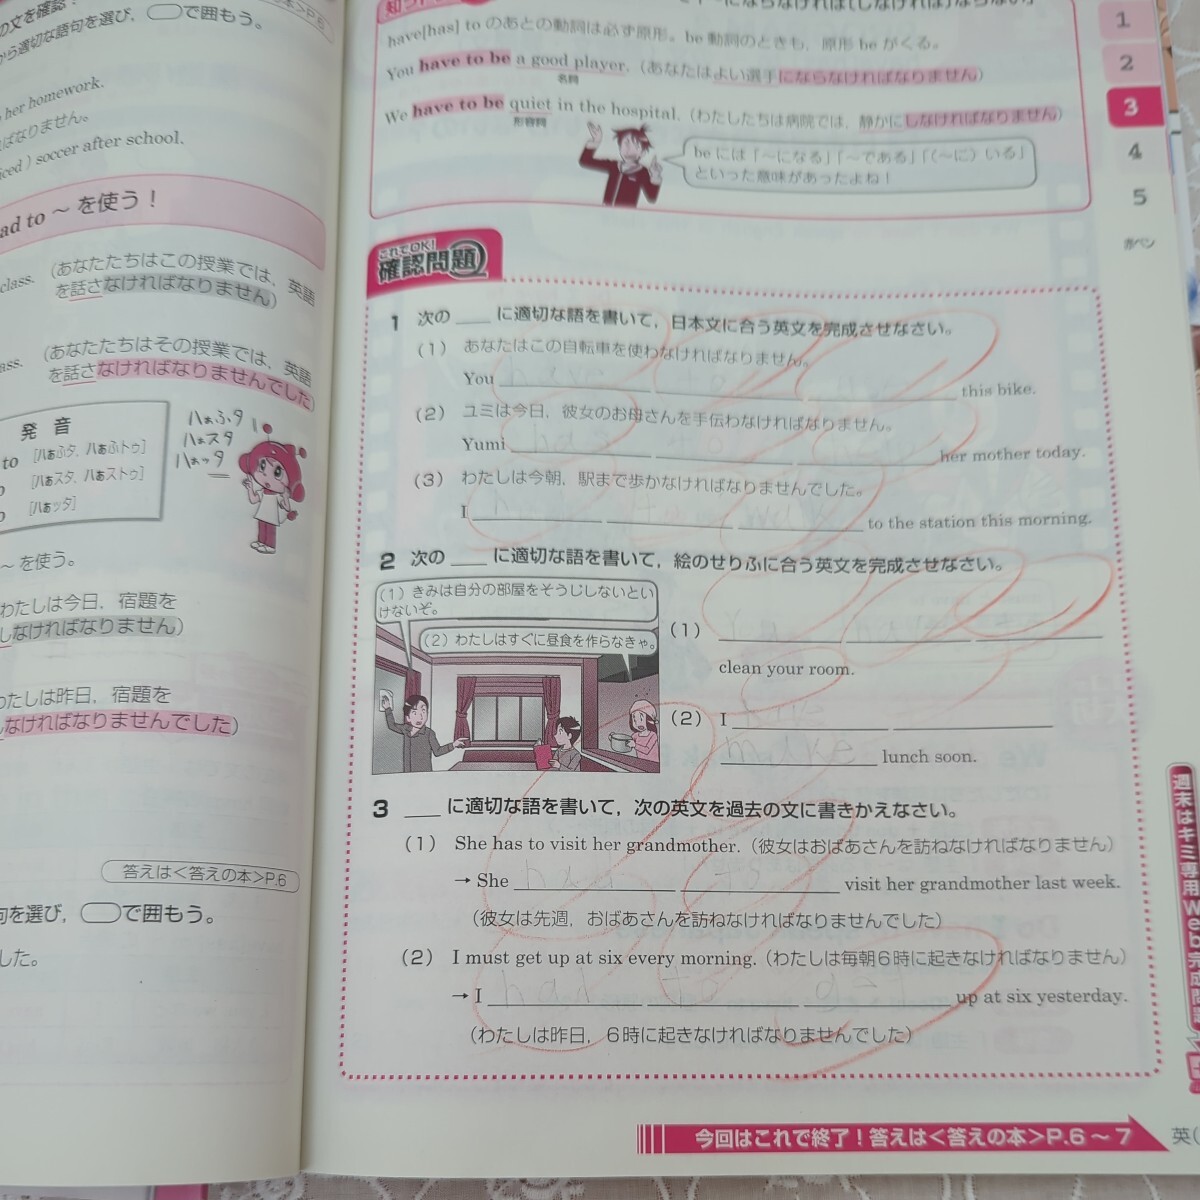 の文を確認！
から適切な語句を選び，◯で囲もう。
her homework.
ばなりません。
iced ) soccer after school.
ad to ～ を使う！
class.
（あなたたちはこの授業では，英語
を話さなければなりません）
ass.
（あなたたちはその授業では，英語
を話さなければなりませんでした）
発 音
to [ハぁふタ，ハぁふトゥ]
[ハぁスタ，ハぁストゥ]
[ハぁッタ]
ハぁふタ
ハぁスタ
ハぁッタ
～ を使う。
わたしは今日，宿題を
しなければなりません）
わたしは昨日，宿題を
なければなりませんでした）
答えは<答えの本>P.6
句を選び，◯で囲もう。
した。
have[has] to のあとの動詞は必ず原形。be 動詞のときも，原形 be がくる。
You have to be a good player.（あなたはよい選手にならなければなりません）
名詞
We have to be quiet in the hospital.（わたしたちは病院では，静かにしなければなりません）
形容詞
be には「～になる」「～である」「（～に）いる」
といった意味があったよね！
1
2
3
4
5
赤ペン
これでOK!
確認問題
1 次の ___ に適切な語を書いて，日本文に合う英文を完成させなさい。
（1） あなたはこの自転車を使わなければなりません。
You have to use this bike.
（2） ユミは今日，彼女のお母さんを手伝わなければなりません。
Yumi has to her mother today.
（3） わたしは今朝，駅まで歩かなければなりませんでした。
I to the station this morning.
2 次の ___ に適切な語を書いて，絵のせりふに合う英文を完成させなさい。
（1）きみは自分の部屋をそうじしないとい
けないぞ。
（2）わたしはすぐに昼食を作らなきゃ。
（1） You have
clean your room.
（2） I have
make lunch soon.
3 ___ に適切な語を書いて，次の英文を過去の文に書きかえなさい。
（1） She has to visit her grandmother.（彼女はおばあさんを訪ねなければなりません）
→ She had to visit her grandmother last week.
（彼女は先週，おばあさんを訪ねなければなりませんでした）
（2） I must get up at six every morning.（わたしは毎朝6時に起きなければなりません）
→ I had to get up at six yesterday.
（わたしは昨日，6時に起きなければなりませんでした）
週末はキミ専用Web完成問題
今回はこれで終了！答えは<答えの本>P.6～7
英(